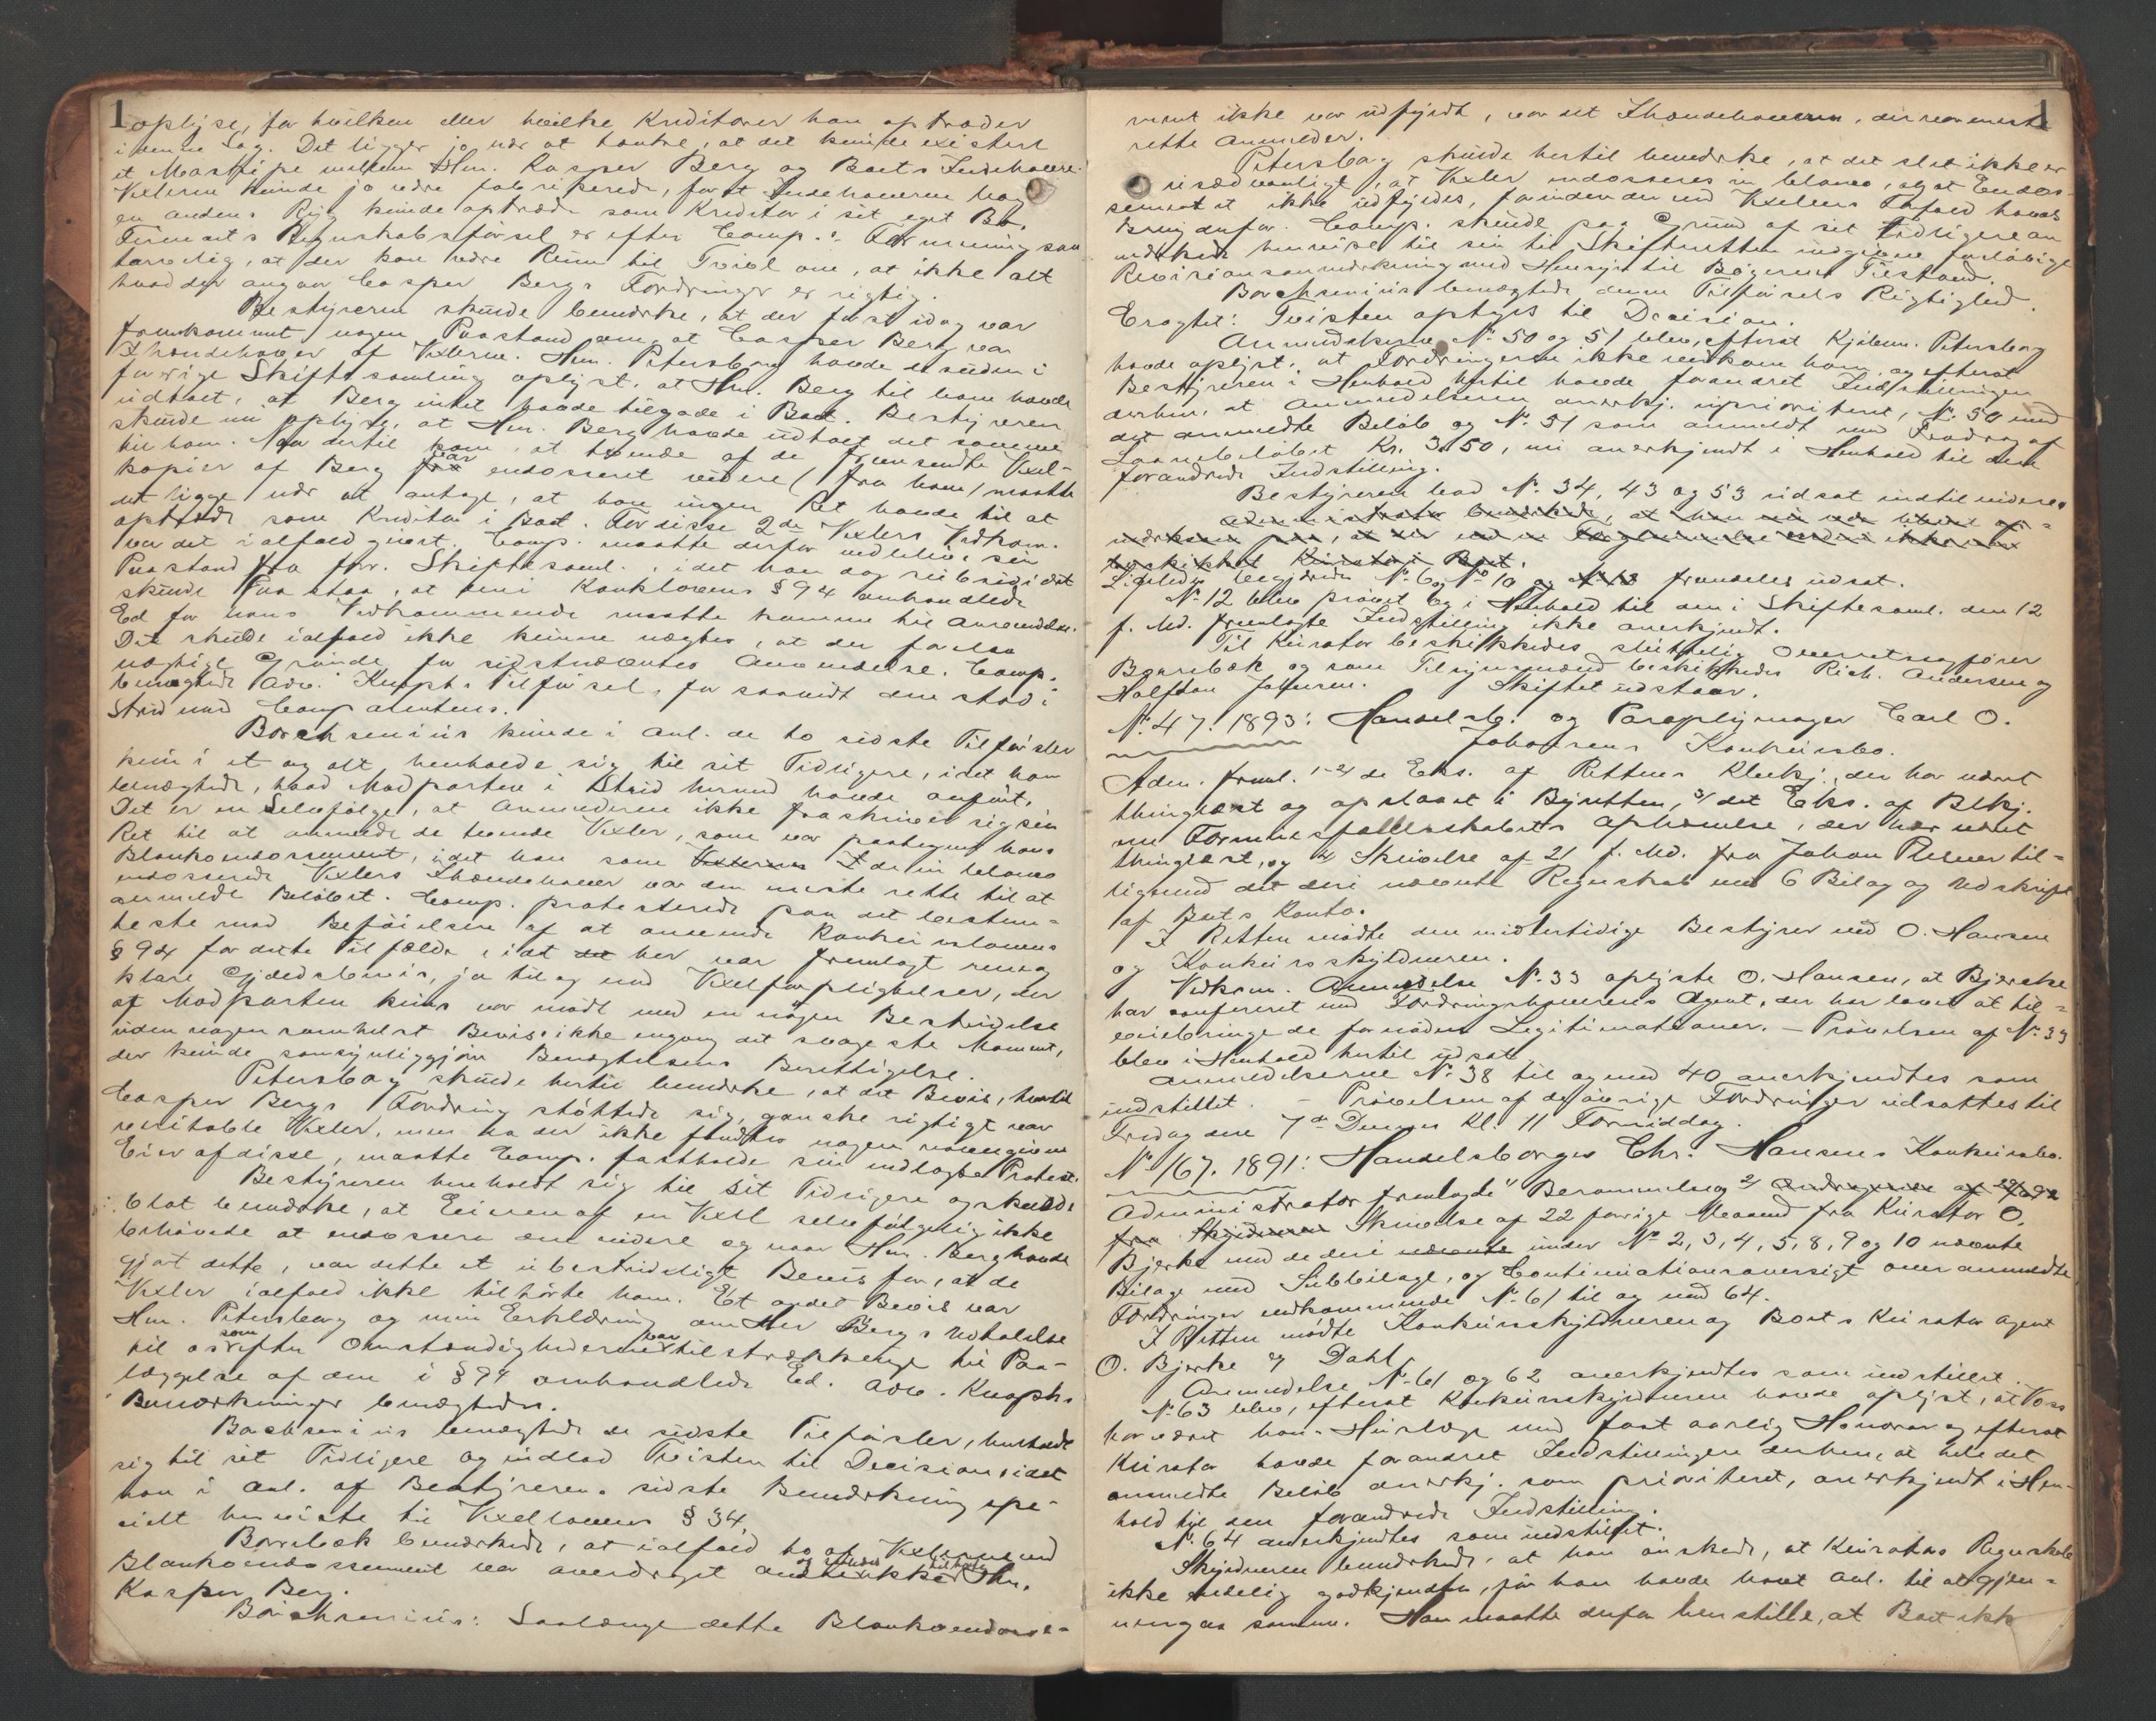 1
oplyse, for hvilken eller hvilke Kreditorer han optræder
i denne Sag. Det ligger jo nær at tænke, at det kunde existere
et Maskepi mellem Hrr. Kasper Berg og Boets Indehavere.
Vexlerne kunde jo være fabrikerede, for at Indehaveren bag
en andens Ryg kunde optræde som Kreditor i sit eget Bo.
Firmaets Regnskabsførsel er efter Comp.s Formening saa
tarvelig, at der kan være Rum til Tvivl om, at ikke alt
hvad der angaar Casper Bergs Fordringer er rigtig.
Bestyreren skulde bemærke, at der først idag var
fremkommet nogen Paastand om, at Casper Berg var
Ihændehaver af Vexlerne. Hrr. Petersborg havde desuden i
forrige Skiftesamling oplyst, at Hrr. Berg til ham havde
udtalt, at Berg intet havde tilgode i Boet. Bestyreren
skulde nu oplyse, at Hrr. Berg havde udtalt det samme
til ham. Naar dertil kom, at tvende af de fremsendte Vexel-
kopier af Berg var endosseret videre (fra ham) maatte
det ligge nær at antage, at han ingen Ret havde til at
optræde som Kreditor i Boet. For disse 2de Vexlers Vedkom.
var det ialfald givet. Comp. maatte derfor vedblive sin
Paastand fra forr. Skiftesaml., idet han dog subsidiært
skulde paastaa, at den i Konkloven § 94 omhandlede
Ed for hans Vedkommende maatte komme til Anvendelse.
Det skulde ialfald ikke kunne nægtes, at der forelaa
vægtige Grunde for sidstnævntes Anvendelse. Comp.
benægtede Adv. Knophs Tilførsel, for saavidt den stod i
Strid med Comparentens.
Borchsenius kunde i Anl. de to sidste Tilførsler
kun i et og alt henholde sig til sit Tidligere, idet han
benægtede, hvad Modparten i Strid hermed havde anført.
Det er en Selvfølge, at Anmelderen ikke fraskriver sig sin
Ret til at anmelde de tvende Vexler, som var paategnet hans
Blankoendossement, idet han som Vexlernes I de in blanco
endosserede Vexlers Ihændehaver var den eneste rette til at
anmelde Beløbet. Comp. protesterede paa det bestem-
teste mod Beføielsen af at anvende Konkurslovens
§ 94 for dette Tilfælde, idet det her var fremlagt rene og
klare Gjældsbevis, ja til og med Vexelforpligtelser, der
af Modparten kun var mødt med en nøgen Bestridelse
uden nogensomhelst Bevis, ikke engang det svageste Moment,
der kunde sansynliggjøre Benægtelsens Berettigelse.
Petersborg skulde hertil bemærke, at det Bevis, hvortil
Casper Bergs Fordring støttede sig, ganske rigtigt var
veritable Vexler, men da der ikke fandtes nogen
Eier af disse, maatte Comp. fastholde sin nedlagte Protest.
Bestyreren henholdt sig til sit Tidligere og skulde
blot bemærke, at Eieren af en Vexel selvfølgelig ikke
behøvede at endossere den videre og naar Hrr. Berg havde
gjort dette, var dette et ubestrideligt Bevis for, at de
Vexler ialfald ikke tilhørte ham. Et andet Bevis var
Hrr. Petersborg og min Erklæring om Herr Bergs Udtalelse
til os som efter Omstændighederne var tilstrækkelige til Paa-
læggelse af den i § 94 omhandlede Ed. Adv. Knophs
Bemærkninger benægtedes.
Borchsenius benægtede de sidste Tilførsler, henholdt
sig til sit Tidligere og indlod Tvisten til Decision, idet
han i Anl. af Bestyrerens sidste Bemærkning spe-
cielt henviste til Vexellovens § 34.
Borrebæk bemærkede, at ialfald to af Vexlerne ved
Blankoendossement var overdraget og saaledes ikke tilhørte Hrr.
Kasper Berg.
Borchsenius: Saalænge dette Blankoendosse-
1
ment ikke var udfyldt, var det Ihændehaveren, der var eneste
rette Anmelder.
Petersborg skulde hertil bemærke, at det slet ikke er
usædvanligt, at Vexler endosseres in blanco, og at Endos-
sementet ikke udfyldes, forinden der ved Vexlens Forfald haves
Brug derfor. Comp. skulde paa Grund af sit tidligere an
mærkede henvise til sin til Skifteretten indgivne foreløbige
Revisionsanmærkning med Hensyn til Bøgernes Tilstand.
Borchsenius benægtede denne Tilførsels Rigtighed.
Eragtet: Tvisten optages til Decision.
Anmeldelserne No. 50 og 51 blev, efterat Kjøbm. Petersborg
havde oplyst, at Fordringerne ikke vedkom ham, og efterat
Bestyreren i Henhold hertil havde forandret Indstillingen
derhen, at Anmeldelserne anerkj. uprioriteret, No. 50 med
det anmeldte Beløb og No. 51 som anmeldt med Fradrag af
Laanebeløbet Kr. 3.50, nu anerkjendt i Henhold til den
forandrede Indstilling.
Bestyreren bad No. 34, 43 og 53 udsat indtil videre.
Administrator bemærkede, at han
beskikket Kurator i Boet.
Ligeledes begjæredes No. 6 og No 10 og No 13 fremdeles udsat.
No. 12 blev prøvet og i Henhold til den i Skiftesaml. den 12
f. Md. fremlagte Indstilling ikke anerkjendt.
Til Kurator beskikkedes sluttelig Overretssagfører
Borrebæk og som Tilsynsmænd beskikkedes Rich. Andersen og
Halfdan Johnsen. Skiftet udstaar.
No. 47. 1893: Handelsb. og Paraplymager Carl O.
Johansens Konkursbo.
Adm. freml. 1-2 de Eks. af Rettens Klækj., der har været
thinglæst og opslaaet i Byretten, 3/ det Eks. af Blkj.
om Formuesfællesskabets Ophævelse, der har været
thinglæst, og 4 Skrivelse af 21 f. Md. fra Johan Plener til-
ligemed det deri nævnte Regnskab med 6 Bilag og Udskrift
af Boets Konto.
I Retten mødte den midlertidige Bestyrer ved O. Hansen
og Konkursskyldneren.
Vedkom. Anmeldelse No. 33 oplyste O. Hansen, at Bjerke
har confereret med Fordringshaverens Agent, der har lovet at til-
veiebringe de fornødne Legitimationer. – Prøvelsen af No. 33
blev i Henhold hertil udsat.
Anmeldelserne No. 38 til og med 40 anerkjendtes som
indstillet. – Prøvelsen af de øvrige Fordringer udsattes til
Fredag den 7de Dennes Kl. 11 Formiddag.
No 167. 1891: Handelsborger Chr. Hansens Konkursbo.
Administrator fremlagde 1/ Berammelse og 2/
fra Skyldneren Skrivelse af 22 forrige Maaned fra Kurator O.
Bjerke med de deri nævnte under No 2, 3, 4, 5, 8, 9 og 10 nævnte
Bilage med Subbilage, og Continuationsoversigt over anmeldte
Fordringer vedkommende No. 61 til og med 64.
I Retten mødte Konkursskyldneren og Boets Kurator Agent
O. Bjerke og Dahl.
Anmeldelse No. 61 og 62 anerkjendtes som indstillet.
No. 63 blev, efterat Konkursskyldneren havde oplyst, at Voss
har været hans Huslæge med fast aarlig Honorar og efterat
Kurator havde forandret Indstillingen derhen, at hele det
anmeldte Beløb anerkj. som prioriteret, anerkjendt i Hen-
hold til den forandrede Indstilling.
No. 64 anerkjendtes som indstillet.
Skyldneren bemærkede, at han ønskede, at Kurators Regnskab
ikke endelig godkjendtes, før han havde havt Anl. til at gjen-
nemgaa samme. Han maatte derfor henstille, at Boet ikke